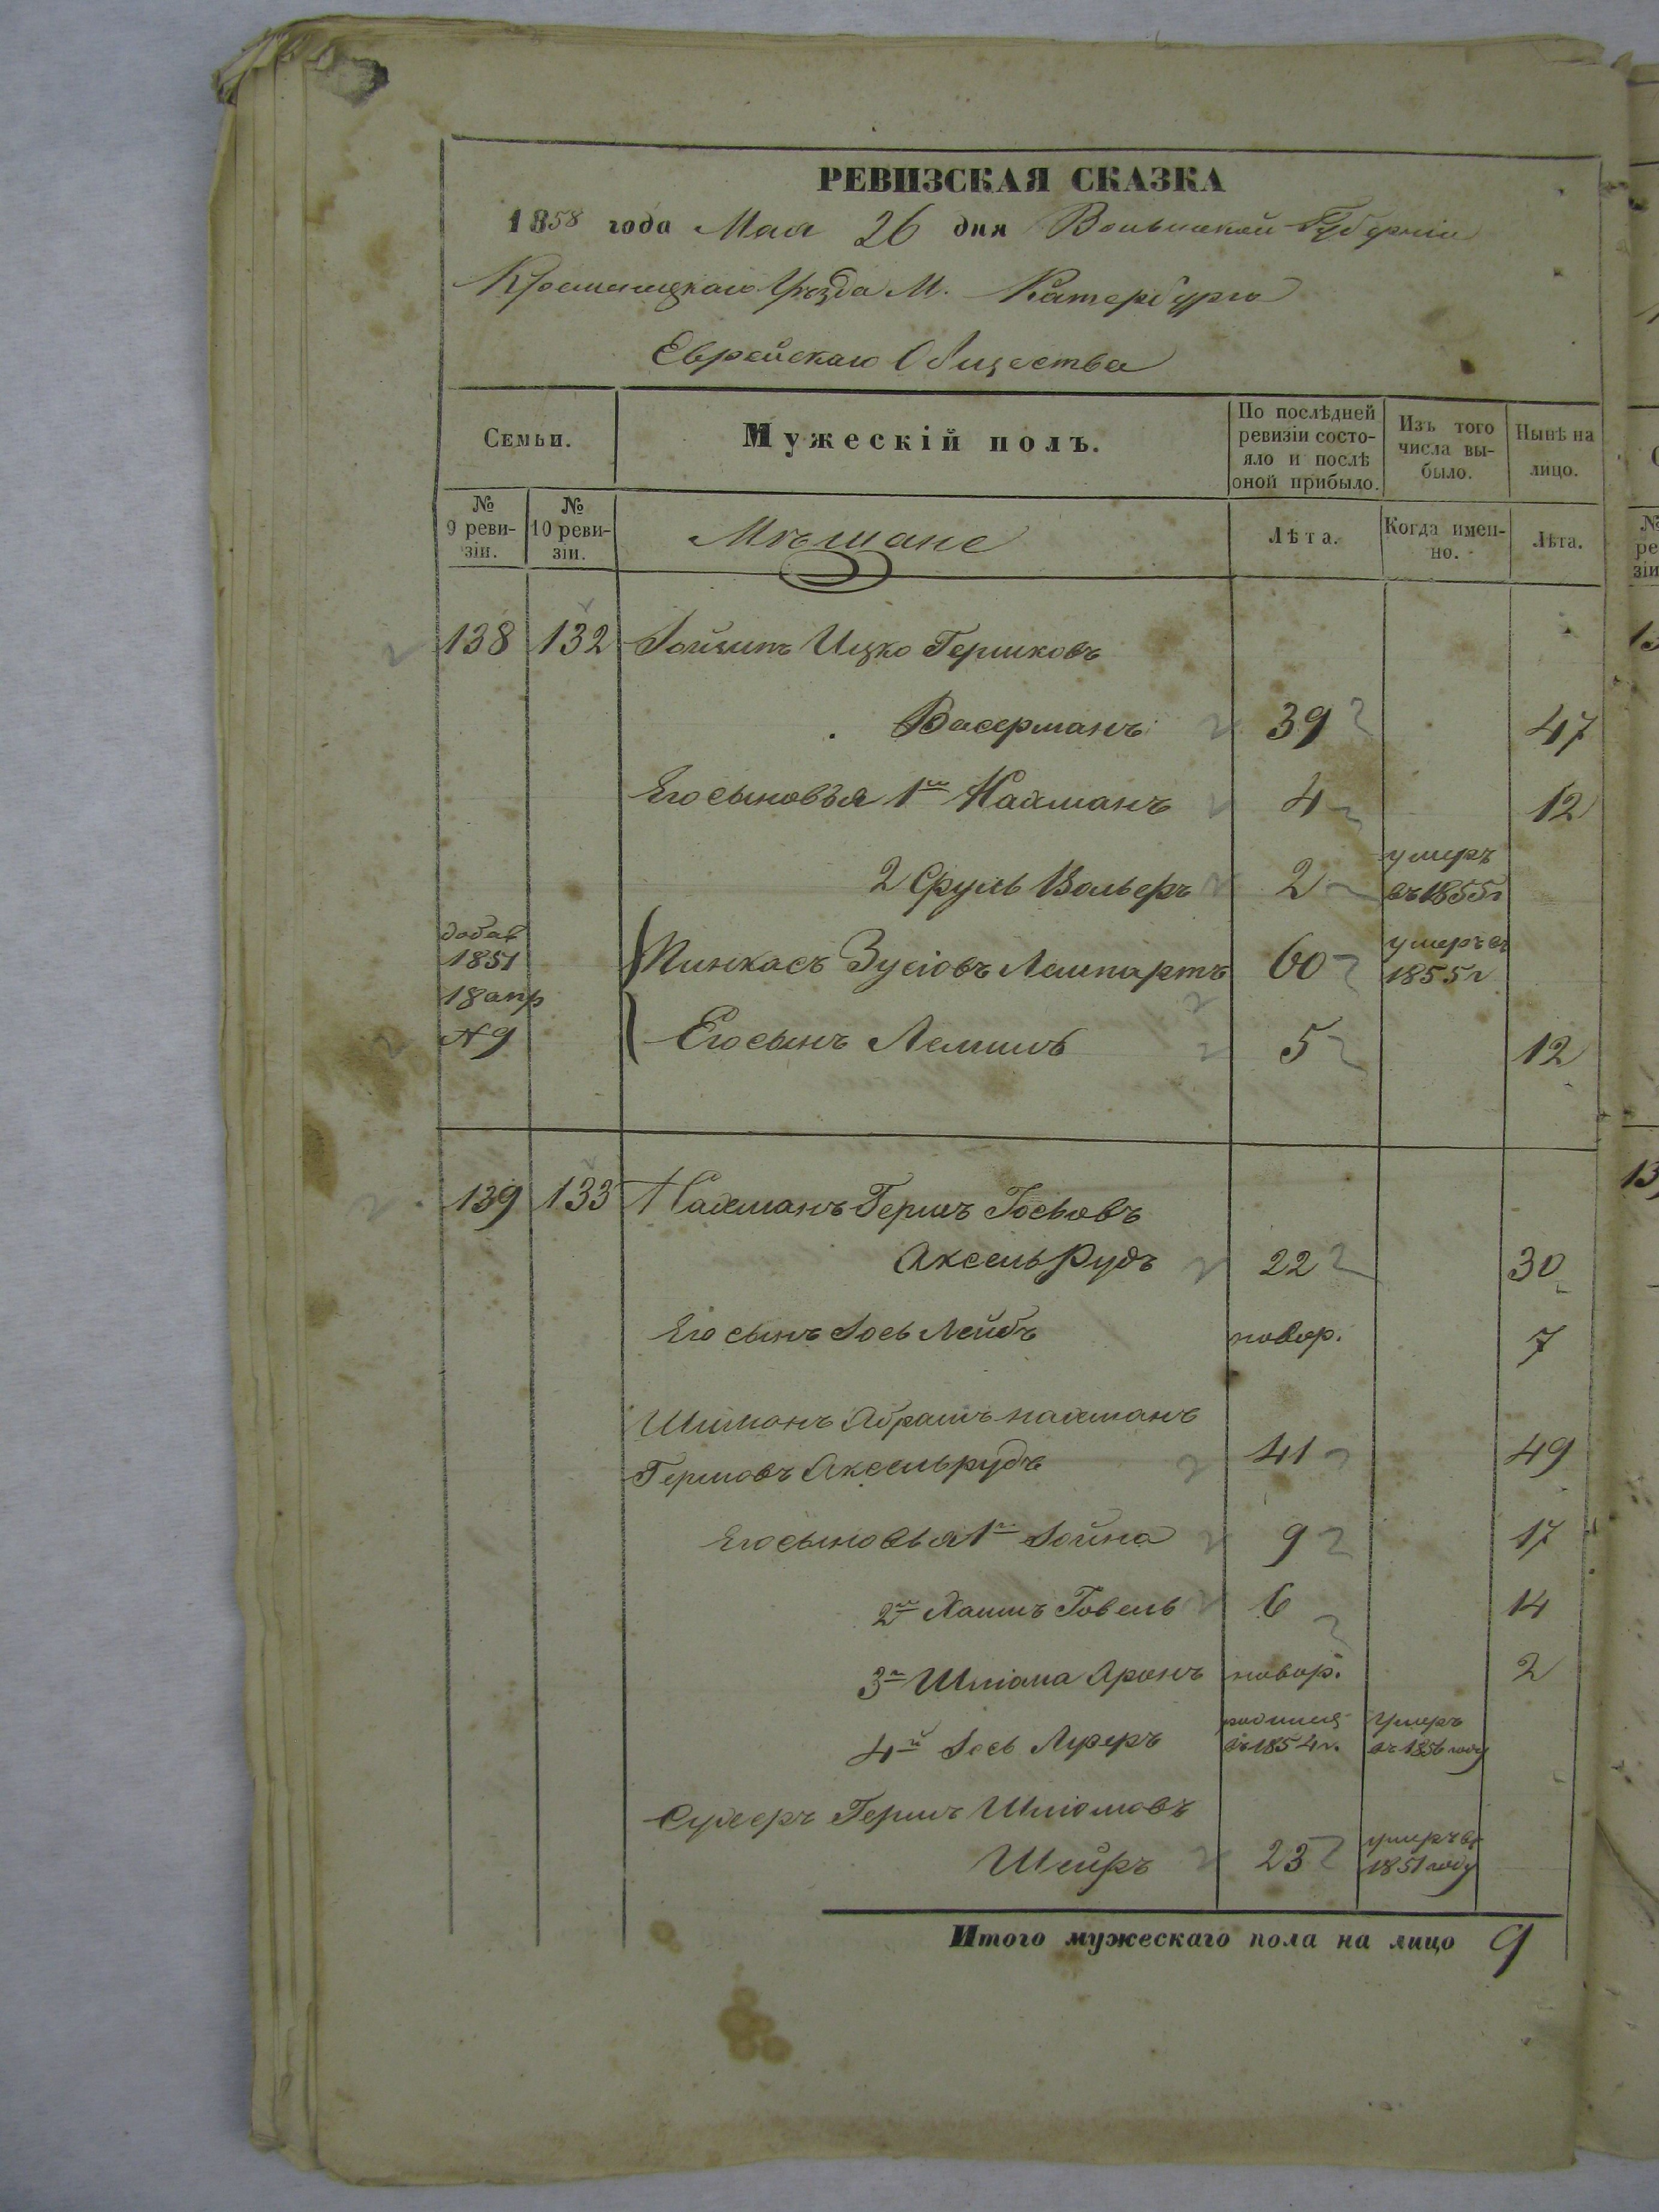 РЕВИЗСКАЯ СКАЗКА
1858 года Мая 26 дня Волынской Губернiи
Кременецкаго Уѣзда М. Катербурга
Еврейскаго Общества
Семьи.
Мужескій полъ.
По послѣдней ревизіи состояло и послѣ оной прибыло.
Изъ того числа выбыло.
Нынѣ на лицо.
№ 9 ревизіи.
№ 10 ревизіи.
Мѣщане
Лѣта.
Когда именно.
Лѣта.
138 132 Ицко Гершковъ
Васерманъ 39 47
Его сыновья 1й Нахманъ 4 12
2 Сруль Вольфъ 2 умеръ въ 1855г
добав 1851 18 апр №9
Пинкасъ Зусіовъ Лемпартъ 60 умеръ въ 1855г
Его сынъ Лемель 5 12
139 133 Нахманъ Гершъ Іосьовъ
Аксельрудъ 22 30
Его сынъ Іось Лейбъ новор. 7
Шимонъ Абрамъ Нахманъ
Гершовъ Аксельрудъ 41 49
Его сыновья 1й Іойна 9 17
2й Хаимъ Говель 6 14
3й Шліома Аронъ новор. 2
4й Іось Лузеръ родился въ 1854г. Умеръ въ 1856 году
Гершъ Шліомовъ
23 умеръ въ 1851 году
Итого мужескаго пола на лицо 9